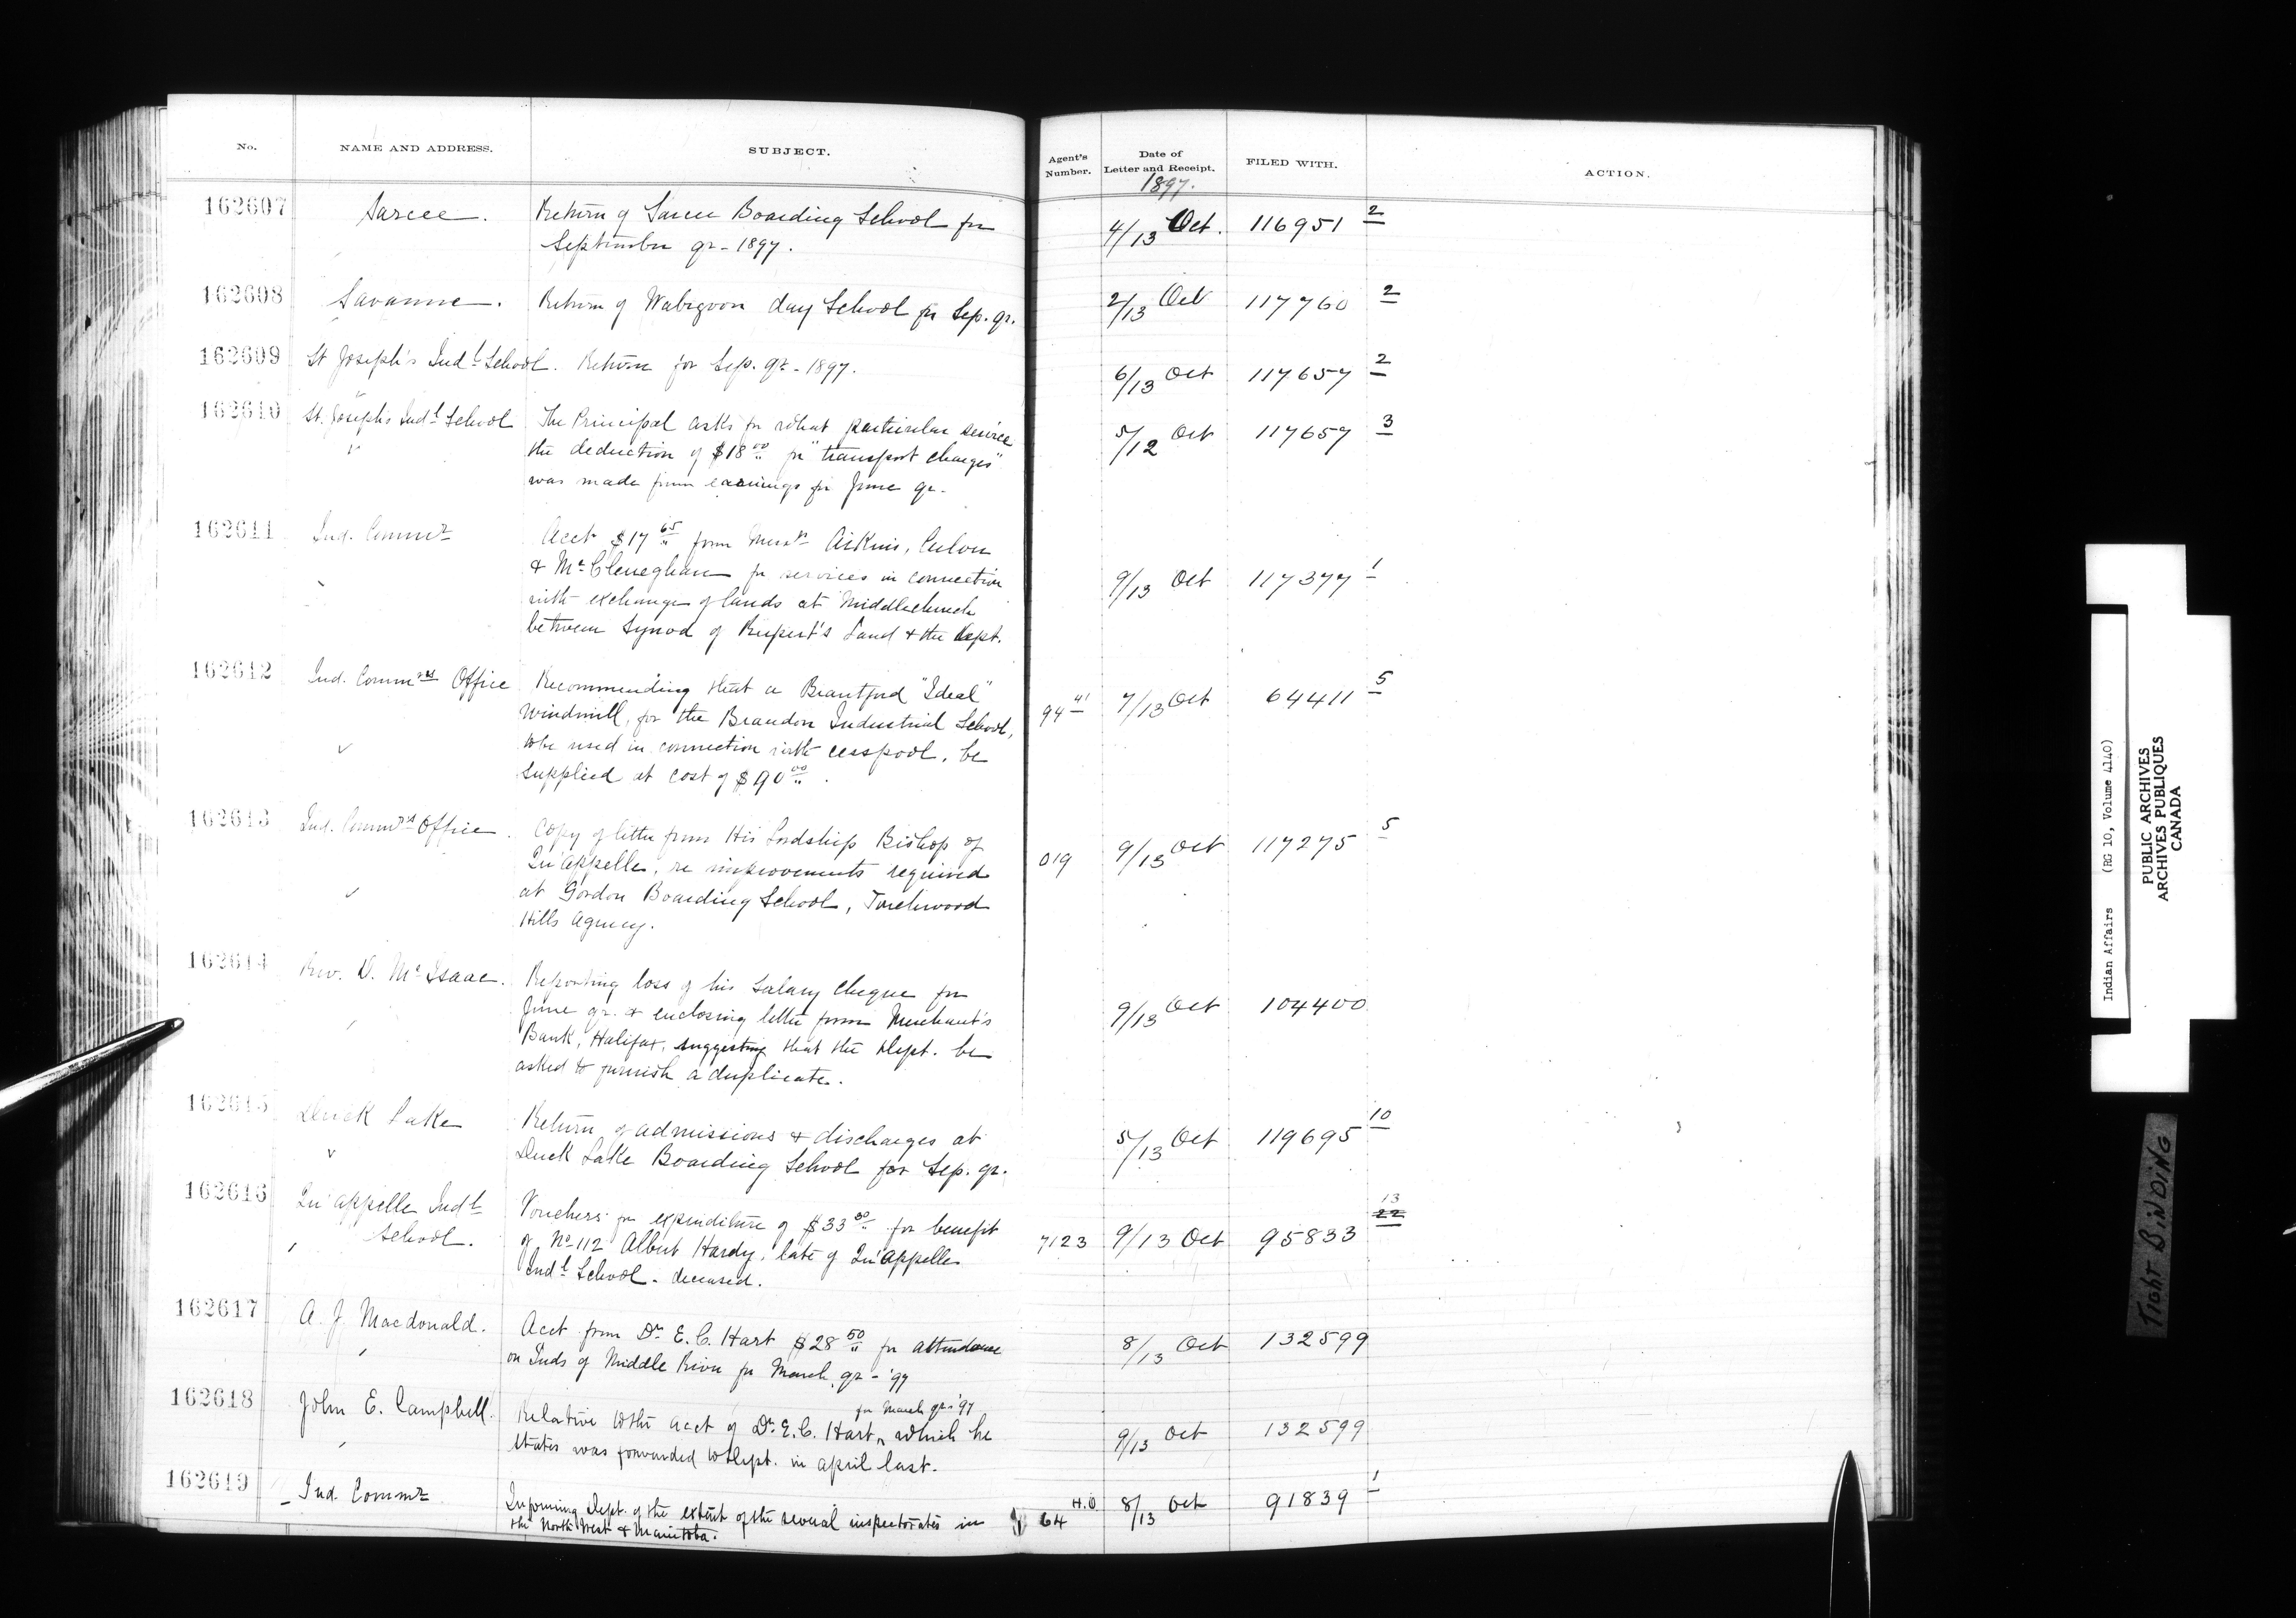 No. NAME AND ADDRESS. SUBJECT. Agent's Number. Date of Letter and Receipt. FILED WITH. ACTION.
1897.
162607 Sarcee. Return of Sarcee Boarding School for 4/13 Oct. 116951 2
September qr - 1897.
162608 Savanne. Return of Wabigoon day School for Sep. qr. 2/13 Oct 117760 2
162609 St Joseph's Indl School. Return for Sep. qr - 1897. 6/13 Oct 117657 2
162610 St. Joseph's Indl School The Principal asks for what particular service 5/12 Oct 117657 3
the deduction of $18 00 for "transport charges"
was made from earnings for June qr.
162611 Ind. Commr Acct $17 65 from Messrs Aikins, Culver
& McCleneghan for services in connection 9/13 Oct 117377 1
with exchange of lands at Middlechurch
between Synod of Rupert's Land & the Dept.
162612 Ind. Commrs Office Recommending that a Brantford "Ideal" 94 41 7/13 Oct 64411 5
Windmill, for the Brandon Industrial School,
to be used in connection with cesspool, be
supplied at cost of $90 00.
162613 Ind. Commrs Office. Copy of letter from His Lordship Bishop of 019 9/13 Oct 117275 5
Qu'appelle, re improvements required
at Gordon Boarding School, Touchwood
Hills Agency.
162614 Rev. D. McIsaac. Reporting loss of his Salary Cheque for 9/13 Oct 104400
June qr. & enclosing letter from Merchant's
Bank, Halifax, suggesting that the Dept. be
asked to furnish a duplicate.
162615 Duck Lake Return of admissions & discharges at 5/13 Oct 119695 10
Duck Lake Boarding School for Sep. qr.
162616 Qu'appelle Indl Vouchers for expenditure of $33 30 for benefit 7123 9/13 Oct 95833 13 22
School. of No 112 Albert Hardy, late of Qu'appelle
Indl School - deceased.
162617 A. J. Macdonald. Acct from Dr E. C. Hart $28 50 for attendance 8/13 Oct 132599
on Inds of Middle River for March qr - '97
162618 John E. Campbell. Relative to the acct of Dr. E. C. Hart for March qr - '97, which he 9/13 Oct 132599
states was forwarded to Dept. in April last.
162619 Ind. Commr Informing Dept. of the extent of the several inspectorates in 64 H.O. 8/13 Oct 91839 1
the North West & Manitoba.
Indian Affairs (RG 10, Volume 4140)
PUBLIC ARCHIVES
ARCHIVES PUBLIQUES
CANADA
TIGHT BINDING